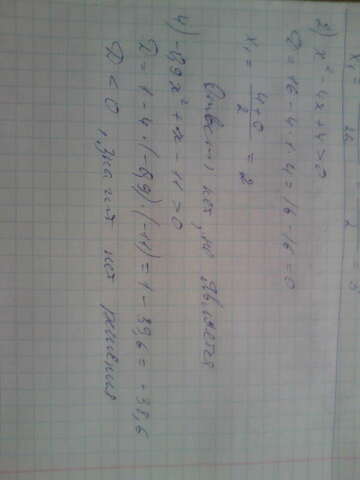 x₁ =
2) x² - 4x + 4 > 0
D = 16 - 4 · 1 · 4 = 16 - 16 = 0
x₁ = 4 + 0 / 2 = 2
Ответ: нет, не является
4) -0,9x² + x - 11 > 0
D = 1 - 4 · (-0,9) · (-11) = 1 - 39,6 = -38,6
D < 0, значит нет решения